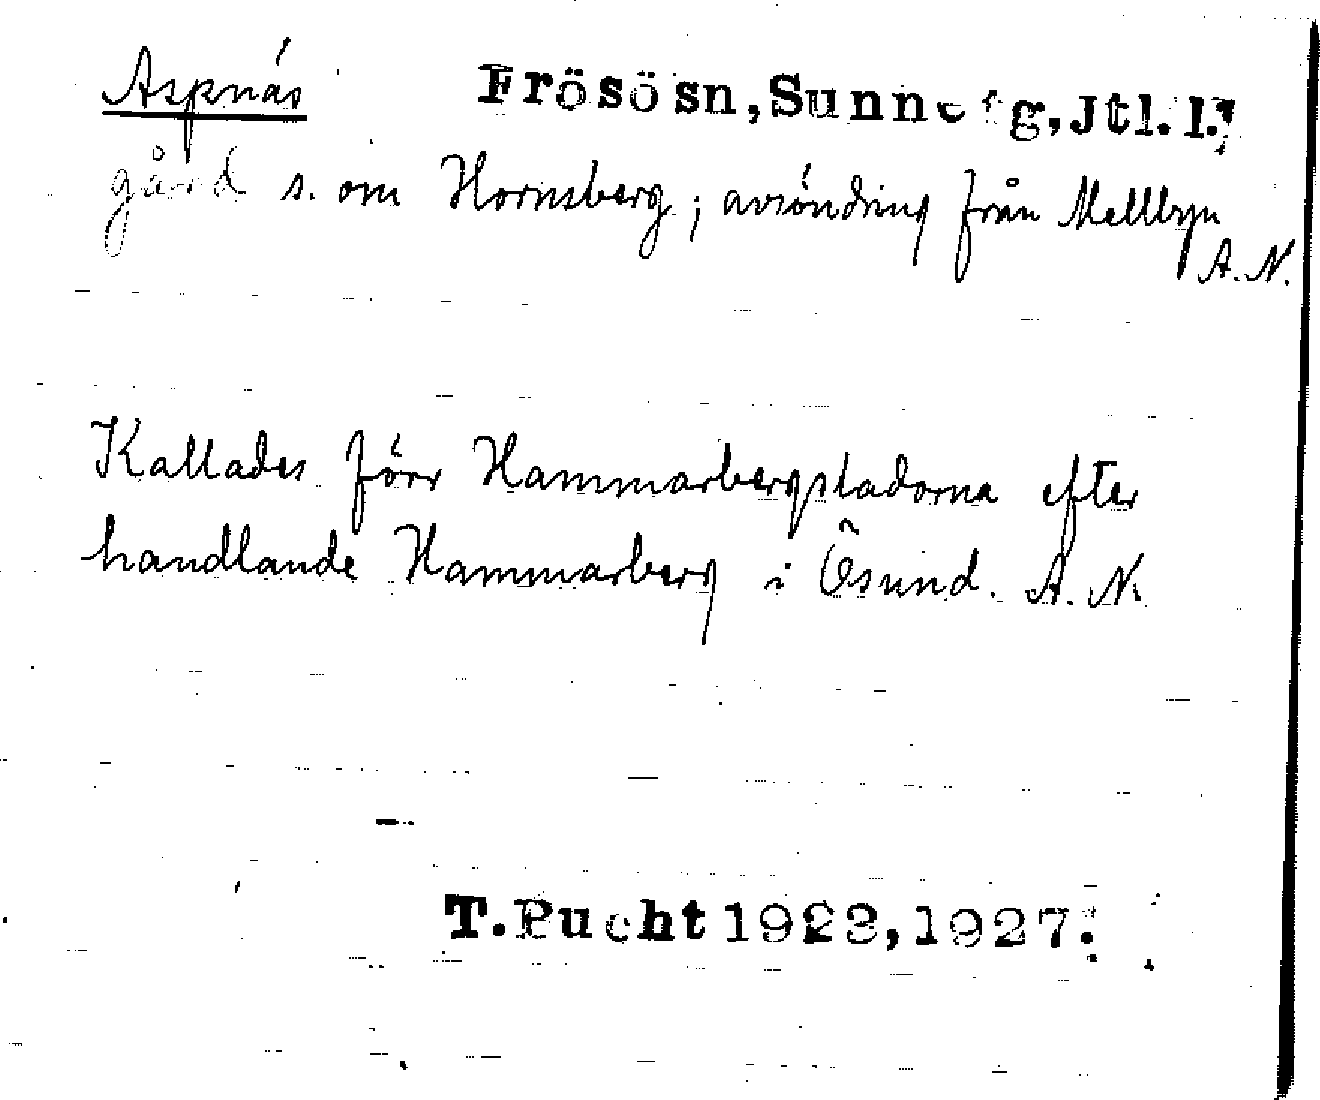 Aspnäs Frösösn, Sunne tg, Jtl. l.
gård s. om Hornsberg; avsöndring från Mellbyn
A.N.
Kallades förr Hammarbergsladorna efter
handlande Hammarberg i Ösund. A.N.
T.Pucht 1922,1927.